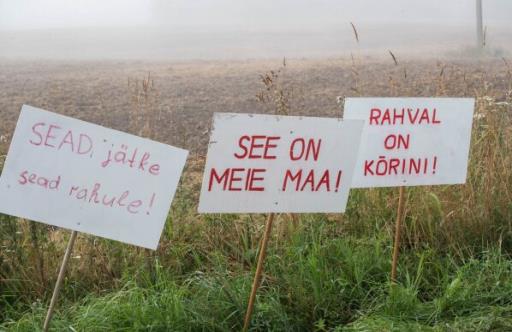 SEAD, jätke
sead rahule!
SEE ON
MEIE MAA!
RAHVAL
ON
KÕRINI!